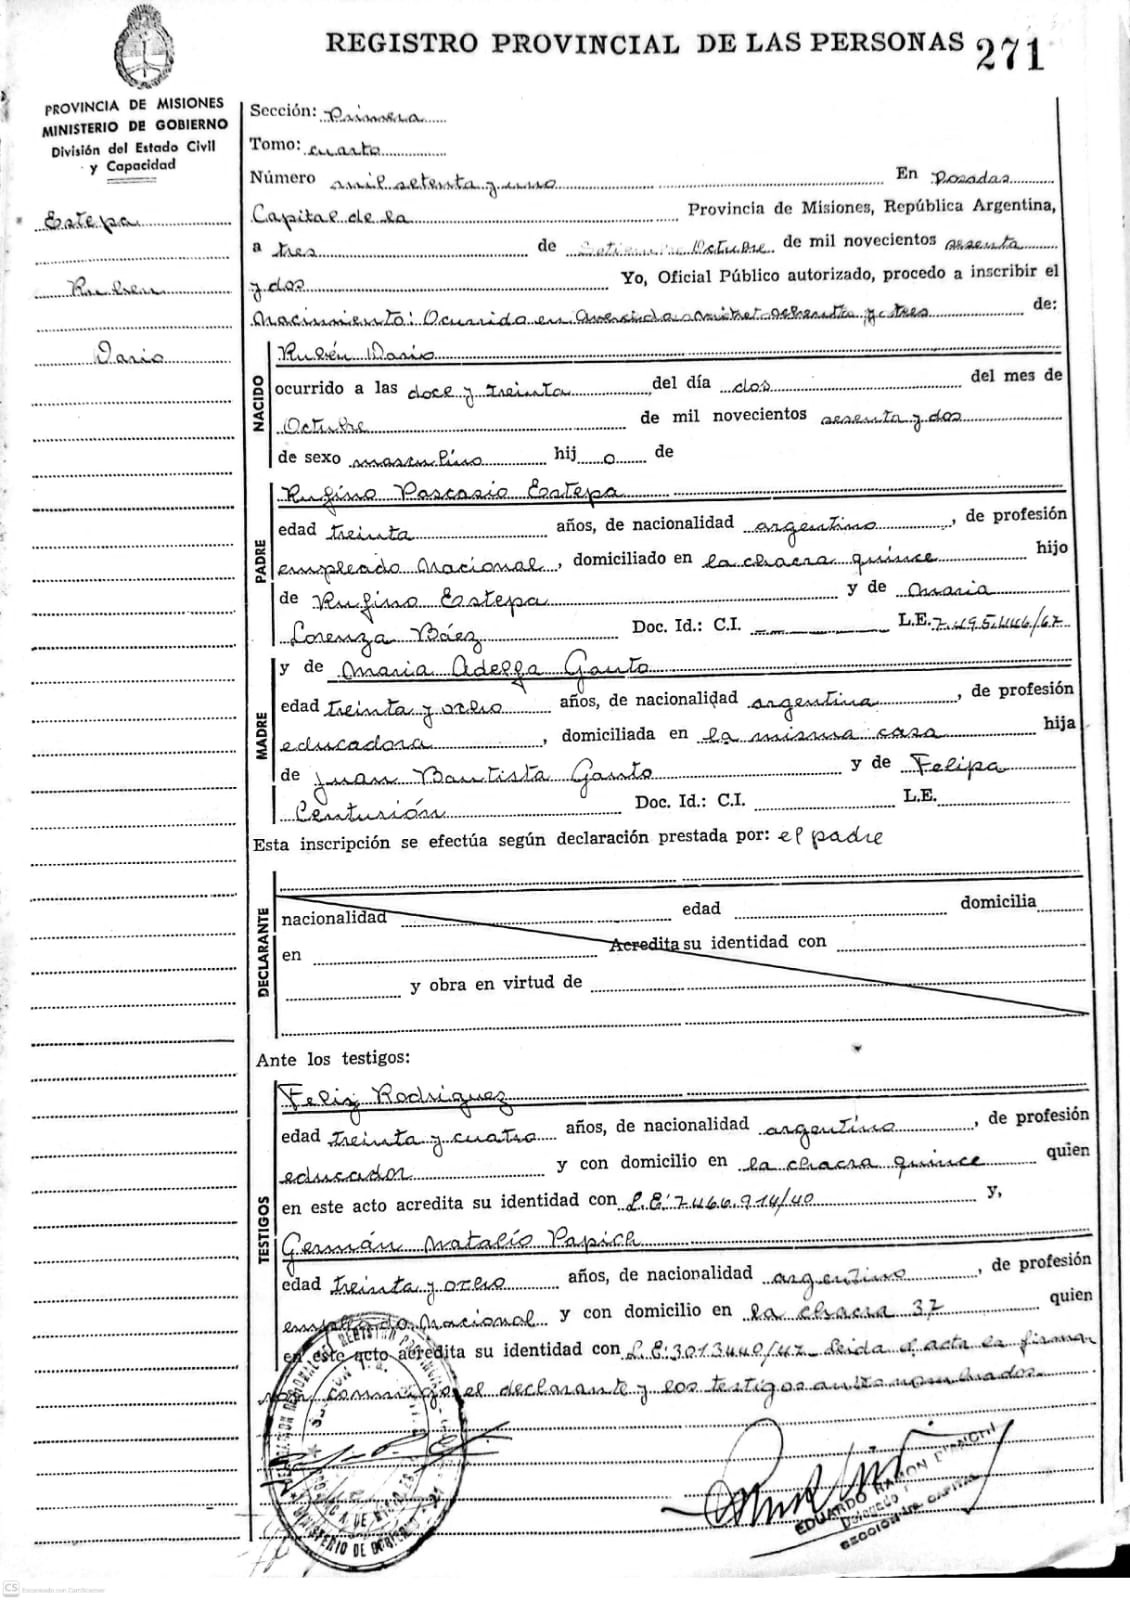 REGISTRO PROVINCIAL DE LAS PERSONAS 271
PROVINCIA DE MISIONES
MINISTERIO DE GOBIERNO
División del Estado Civil
y Capacidad
Estepa
Ruben
Dario
Sección: Primera
Tomo: cuarto
Número mil setenta y uno En Posadas
Capital de la Provincia de Misiones, República Argentina,
a tres de Octubre de mil novecientos sesenta
y dos Yo, Oficial Público autorizado, procedo a inscribir el
Nacimiento: Ocurrido en Avenida ochenta y tres de:
NACIDO
Rubén Dario
ocurrido a las doce y treinta del día dos del mes de
Octubre de mil novecientos sesenta y dos
de sexo masculino hij o de
PADRE
Rufino Pascasio Estepa
edad treinta años, de nacionalidad argentino, de profesión
empleado Nacional, domiciliado en la chacra quince hijo
de Rufino Estepa y de Maria
Lorenza Báez Doc. Id.: C.I. L.E. 7.495.446/67
MADRE
y de Maria Adelfa Gauto
edad treinta y ocho años, de nacionalidad argentina, de profesión
educadora, domiciliada en la misma casa hija
de Juan Bautista Gauto y de Felipa
Centurión Doc. Id.: C.I. L.E.
Esta inscripción se efectúa según declaración prestada por: el padre
DECLARANTE
nacionalidad edad domicilia
en Acredita su identidad con
y obra en virtud de
Ante los testigos:
TESTIGOS
Feliz Rodriguez
edad treinta y cuatro años, de nacionalidad argentino, de profesión
educador y con domicilio en la chacra quince quien
en este acto acredita su identidad con L.E: 7466.914/40 y,
Germán Natalío Papich
edad treinta y ocho años, de nacionalidad argentino, de profesión
empleado Nacional y con domicilio en la chacra 37 quien
en este acto acredita su identidad con L.E: 3013440/47 Leida el acta la firman
conmigo el declarante y los testigos antes nombrados.
EDUARDO RAMON BIANCHI
Delegado
SECCION 1a. CAPITAL
MINISTERIO DE GOBIERNO
CS Escaneado con CamScanner